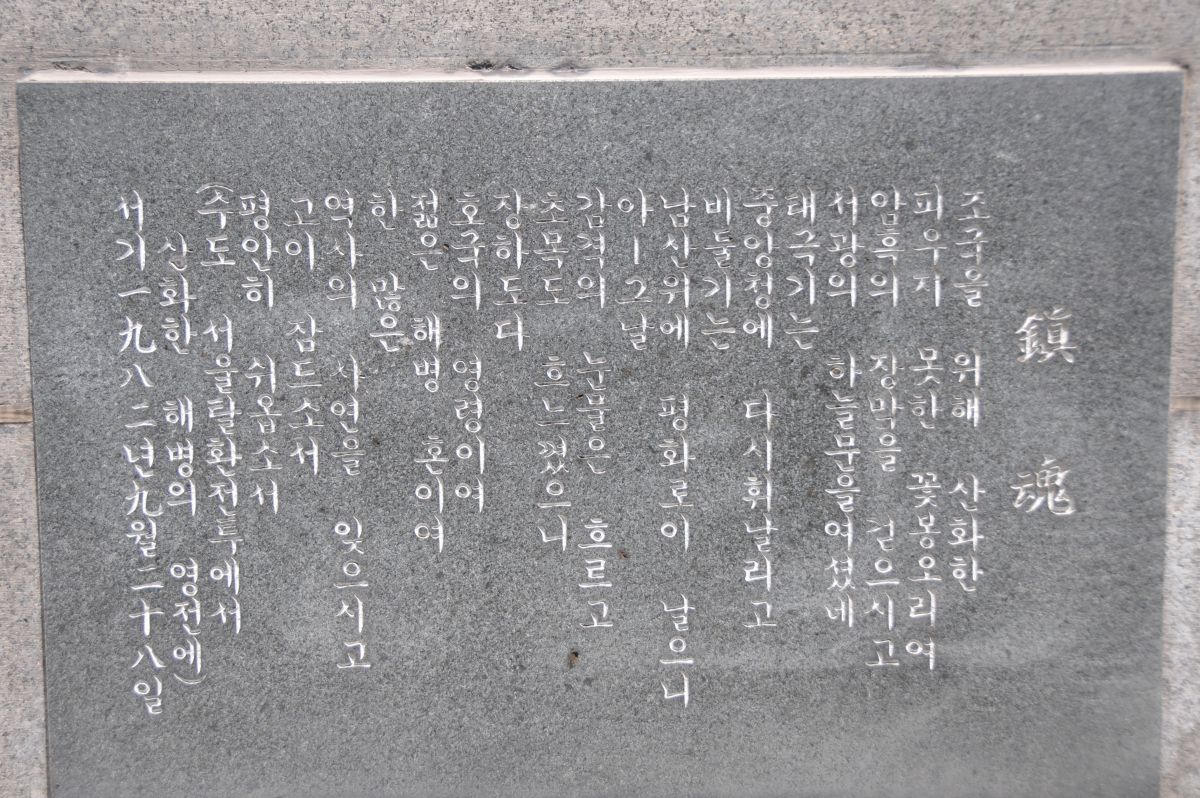 鎭魂
조국을 위해 산화한
피우지 못한 꽃봉오리여
암흑의 장막을 걷으시고
서광의 하늘문을여셨네
태극기는
중앙청에 다시휘날리고
비둘기는
남산위에 평화로이 날으니
아ー그날
감격의 눈물은 흐르고
초목도 흐느꼈으니
장하도다
호국의 영령이여
젊은 해병 혼이여
한 많은
역사의 사연을 잊으시고
고이 잠드소서
평안히 쉬옵소서
(수도 서울탈환전투에서
산화한 해병의 영전에)
서기一九八二년九월二十八일